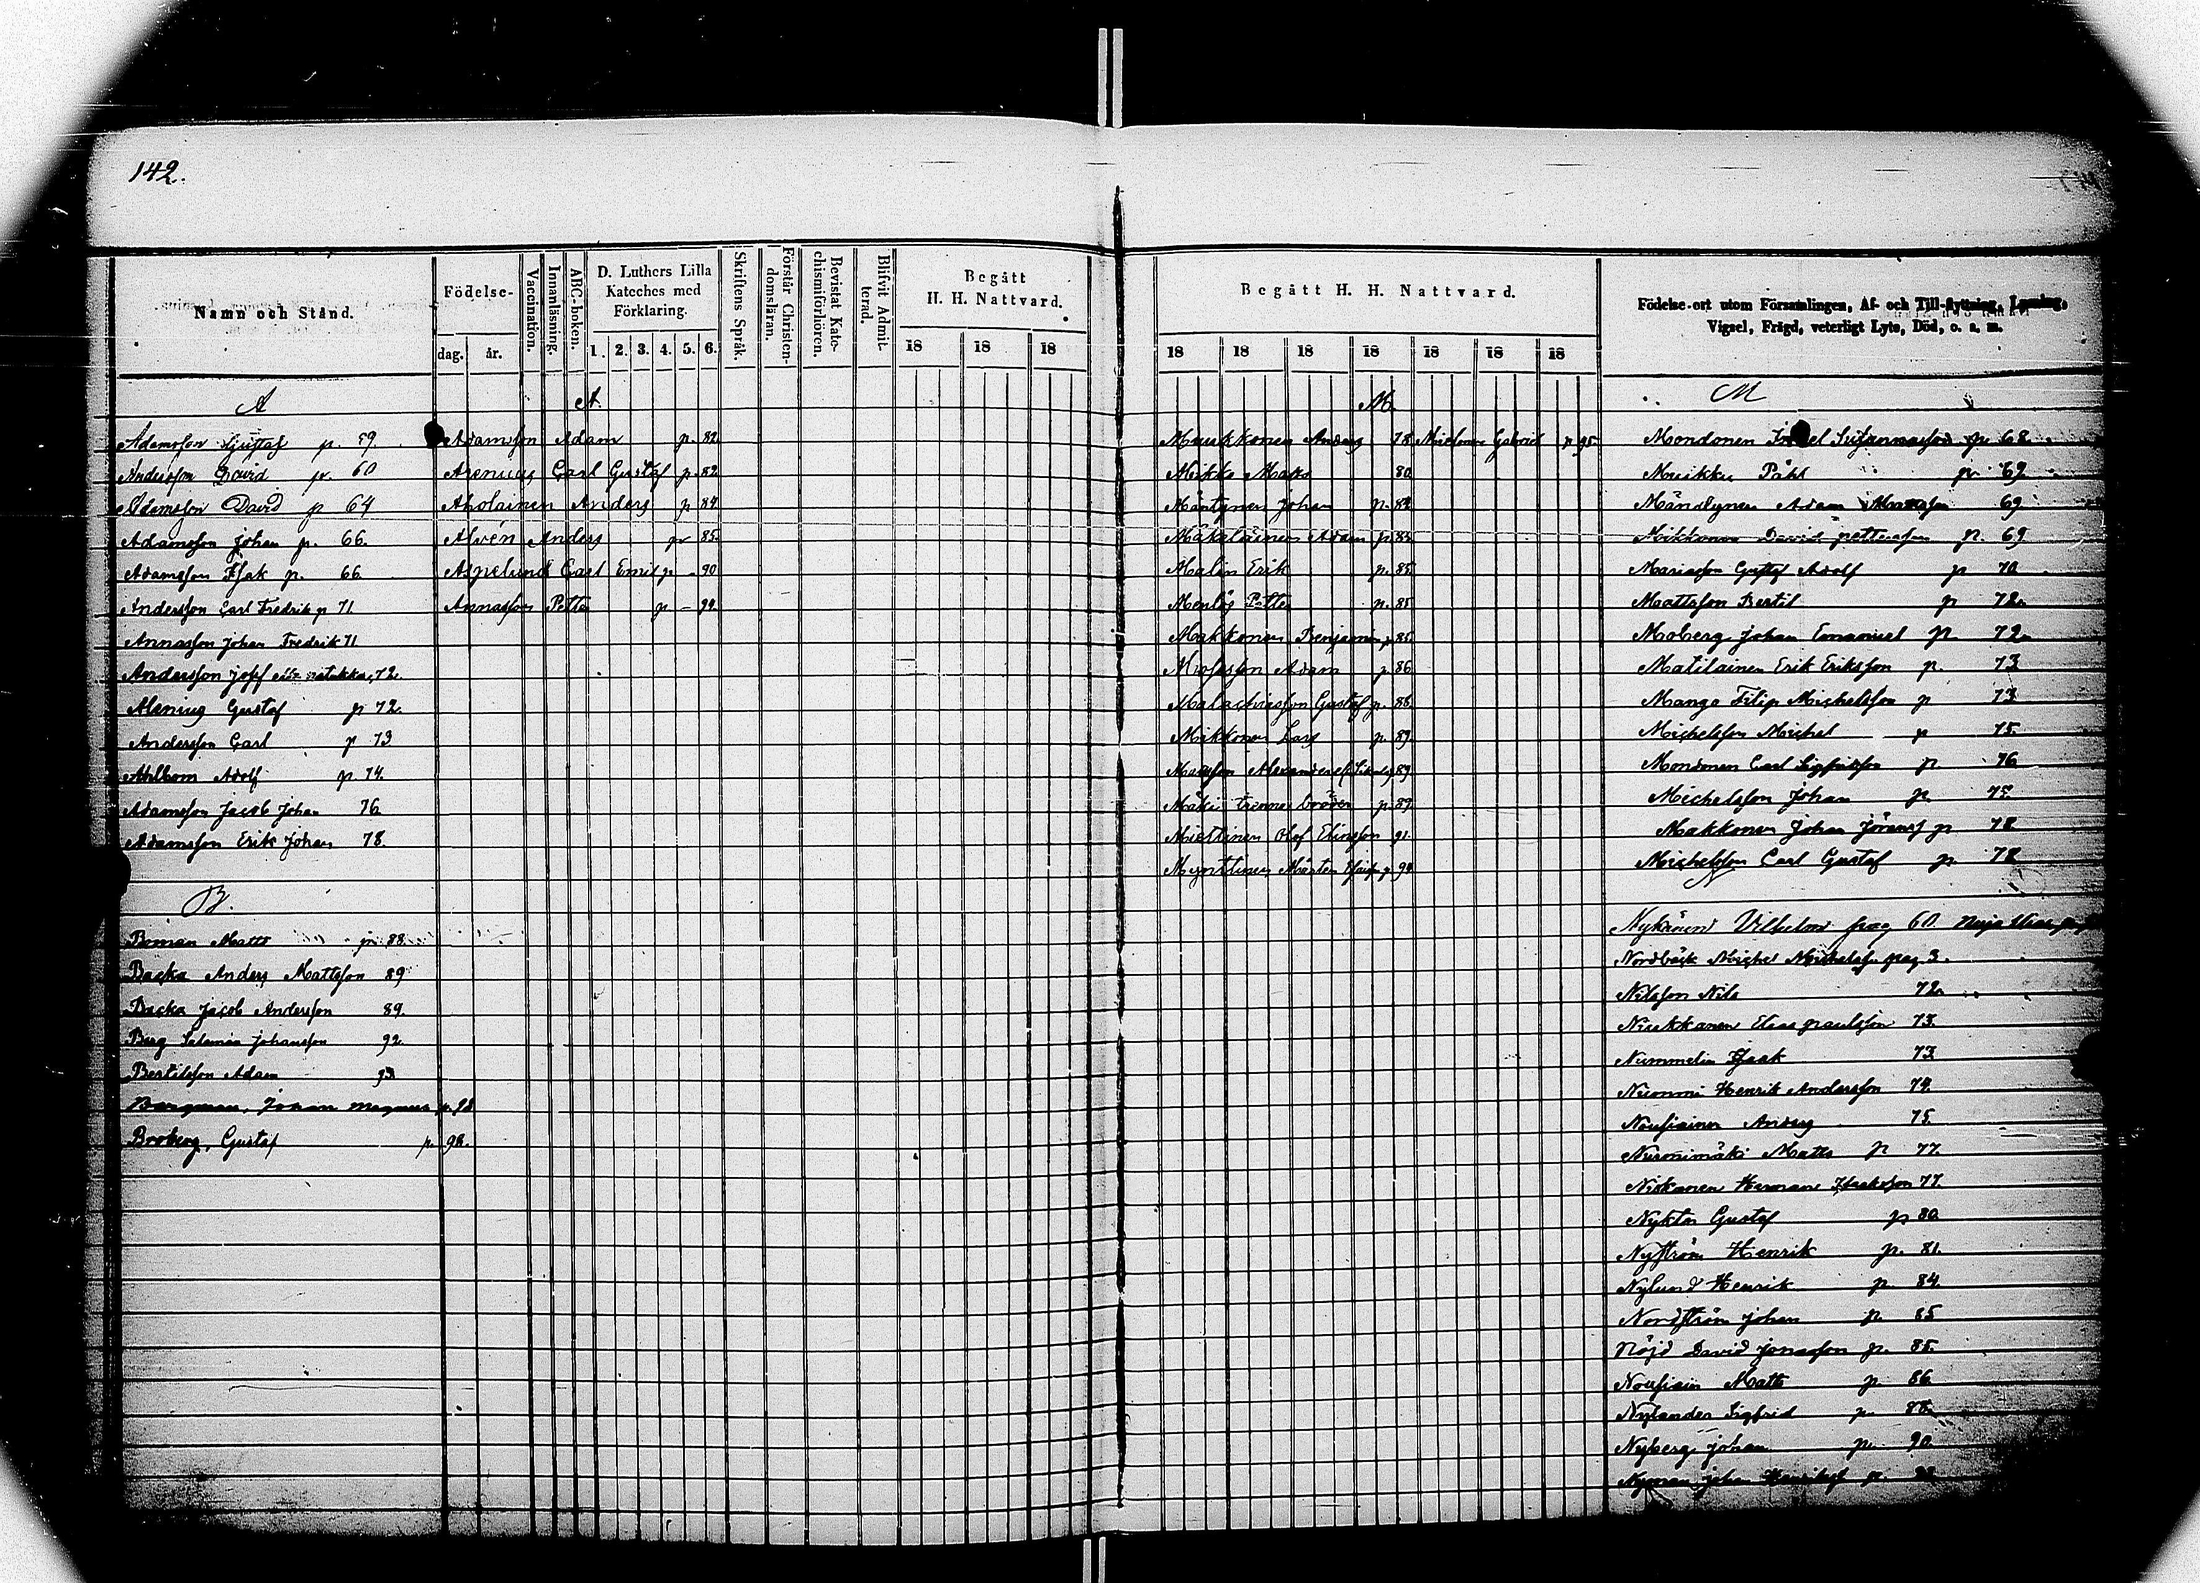 142.
Namn och Stånd.
Födelse-
dag.
år.
Vaccination.
Innanläsning.
ABC-boken.
D. Luthers Lilla
Kateches med
Förklaring.
1. 2. 3. 4. 5. 6.
Skriftens Språk.
Förstår Christen-
domsläran.
Bevistat Kate-
chismiförhören.
Blifvit Admit-
terad.
Begått
H. H. Nattvard.
18 18 18
Begått H. H. Nattvard.
18 18 18 18 18 18 18
Födelse-ort utom Församlingen, Af- och Till-flyttning, Lysning,
Vigsel, Frägd, veterligt Lyte, Död, o. s. m.
A
Adamsson Gustaf p. 59.
Andersson David p. 60
Adamsson David p 64
Adamsson Johan p. 66.
Adamsson Isak p. 66.
Andersson Carl Fredrik p 71
Annasson Johan Fredrik 71
Andersson Josef 72.
Alenius Gustaf p 72.
Andersson Carl p 73
Ahlbom Adolf p 74.
Adamsson Jacob Johan 76
Adamsson Erik Johan 78.
B.
Boman Matts p. 88.
Backa Anders Mattsson 89
Backa Jacob Andersson 89.
Berg Salomon Johansson 92.
Bertilsson Adam 93
Bergman, Johan Magnus p. 98
Broberg, Gustaf p. 98.
A.
Adamsson Adam p. 82
Arenius Carl Gustaf p. 82
Aholainen Anders p 84
Alvén Anders p 85.
Aspelund Carl Emil p - 90
Annasson Petter p - 94
M.
Muukkonen Anders 78 Gabriel p 95
Mikko Matts 80
Mäntynen Johan p. 84
Mäkeläinen Adam p. 85
Malin Erik p. 85
Menlös Petter p. 85
Makkonen Benjamin p. 85
Mosesson Adam p 86
Malachiasson Gustaf p. 88.
Mikkonen Lars p. 89
Alexander 89
Mäki bröder p. 89
Miettinen Olof Eliasson 91.
Myrttinen Mårten p 94
M
Mondonen p 68.
Muikku Påhl p 69
Mändynen Adam 69
Mikkonen David Pettersson p. 69
Mariasson Gustaf Adolf p 70
Mattsson Bertil p 72
Moberg Johan Emanuel p. 72
Matilainen Erik Eriksson p. 73
Mango Filip Michelsson p 73
Michelsson Michel p 75.
Mondonen Carl Sigfridsson p 76
Michelsson Johan p. 75
Makkonen Johan p 78
Michelsson Carl Gustaf p 78
N
Nykänen Vilhelm pag 60
Nordbäck Michel Michelss. pag 3.
Nilsson Nils 72
Niukkanen Elias Paulsson 73.
Nummelin Isaak 73
Niemmi Henrik Andersson 74.
Nousiainen Anders 75.
Nuronimäki Matts p 77.
Niskanen Herman Isaksson 77.
Nykter Gustaf p 80
Nyström Henrik p. 81.
Nylund Henrik p. 84
Nordström Johan p. 85
Nöjd David Jonasson p. 85.
Nousiain Matts p. 86
Nylander Sigfrid p. 88.
Nyberg Johan p. 90
Nyman Johan p.